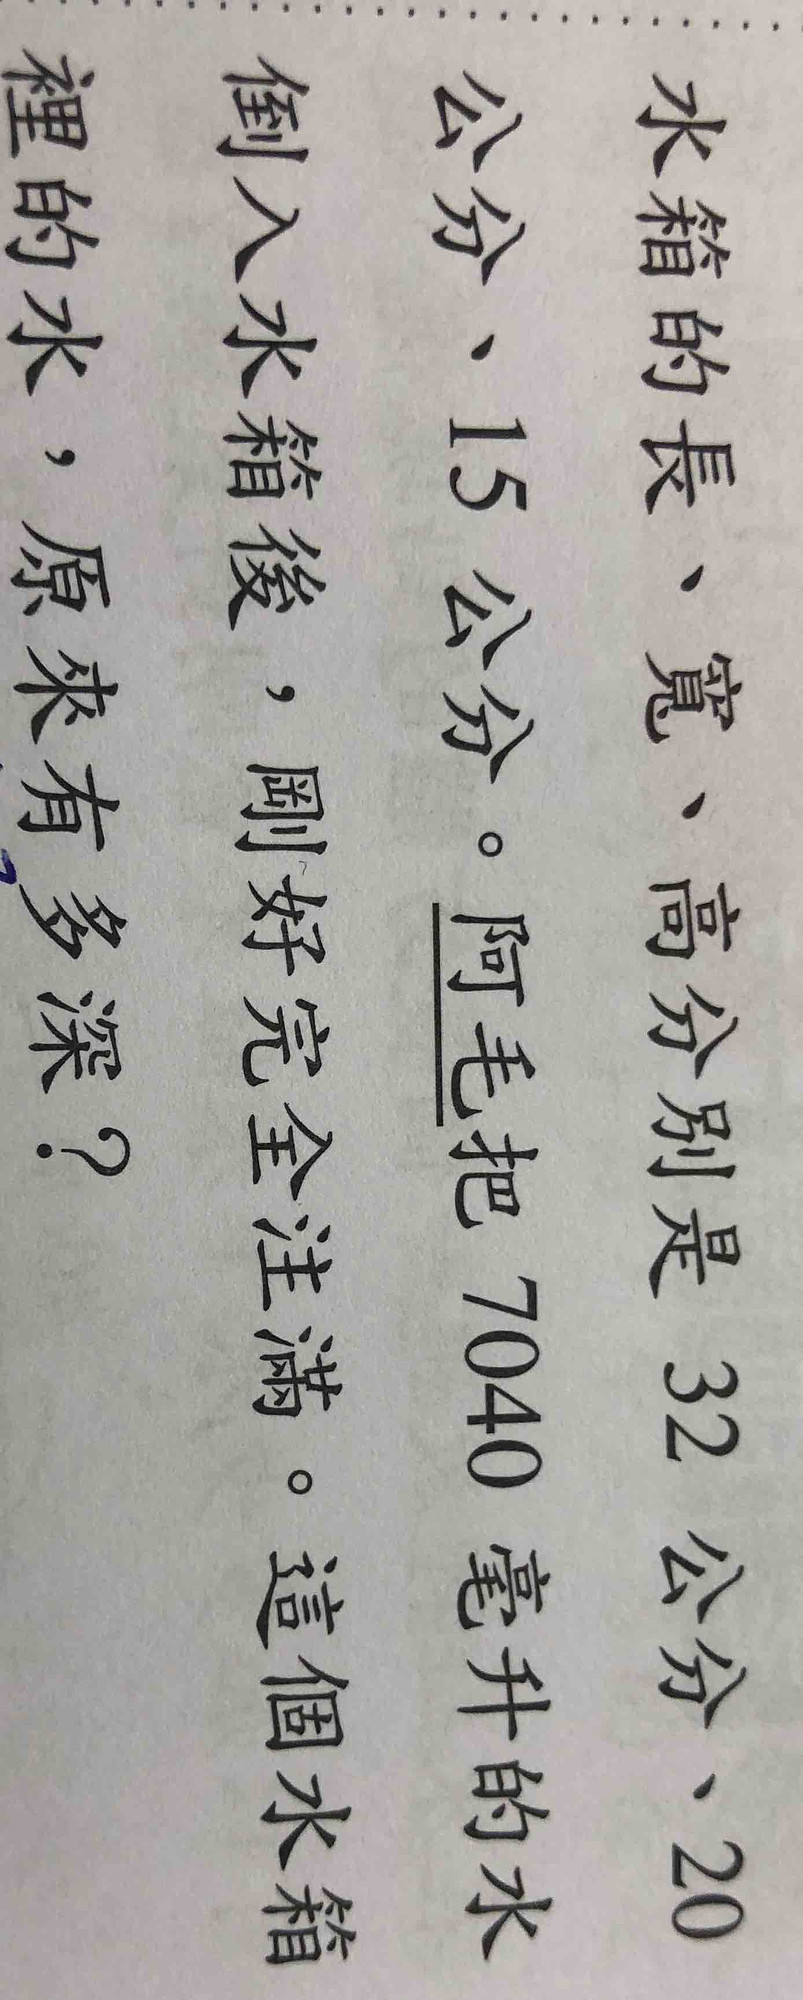 水箱的長、寬、高分別是 32 公分、20
公分、15 公分。阿毛把 7040 毫升的水
倒入水箱後，剛好完全注滿。這個水箱
裡的水，原來有多深？